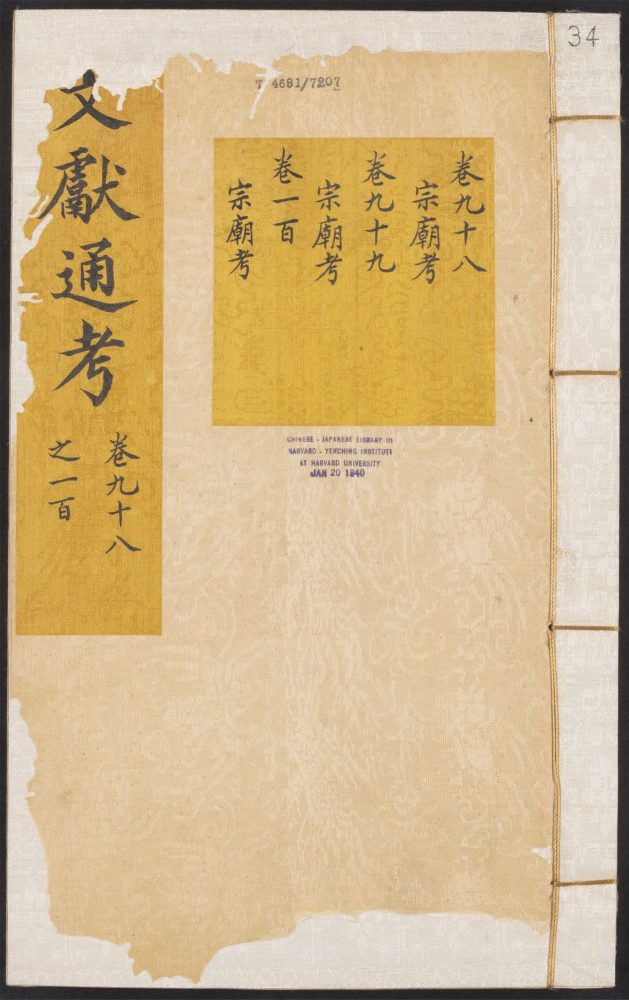 34
T 4681/7207
文獻通考
卷九十八
之一百
卷九十八
宗廟考
卷九十九
宗廟考
卷一百
宗廟考
CHINESE - JAPANESE LIBRARY OF
HARVARD - YENCHING INSTITUTE
AT HARVARD UNIVERSITY
JAN 20 1940